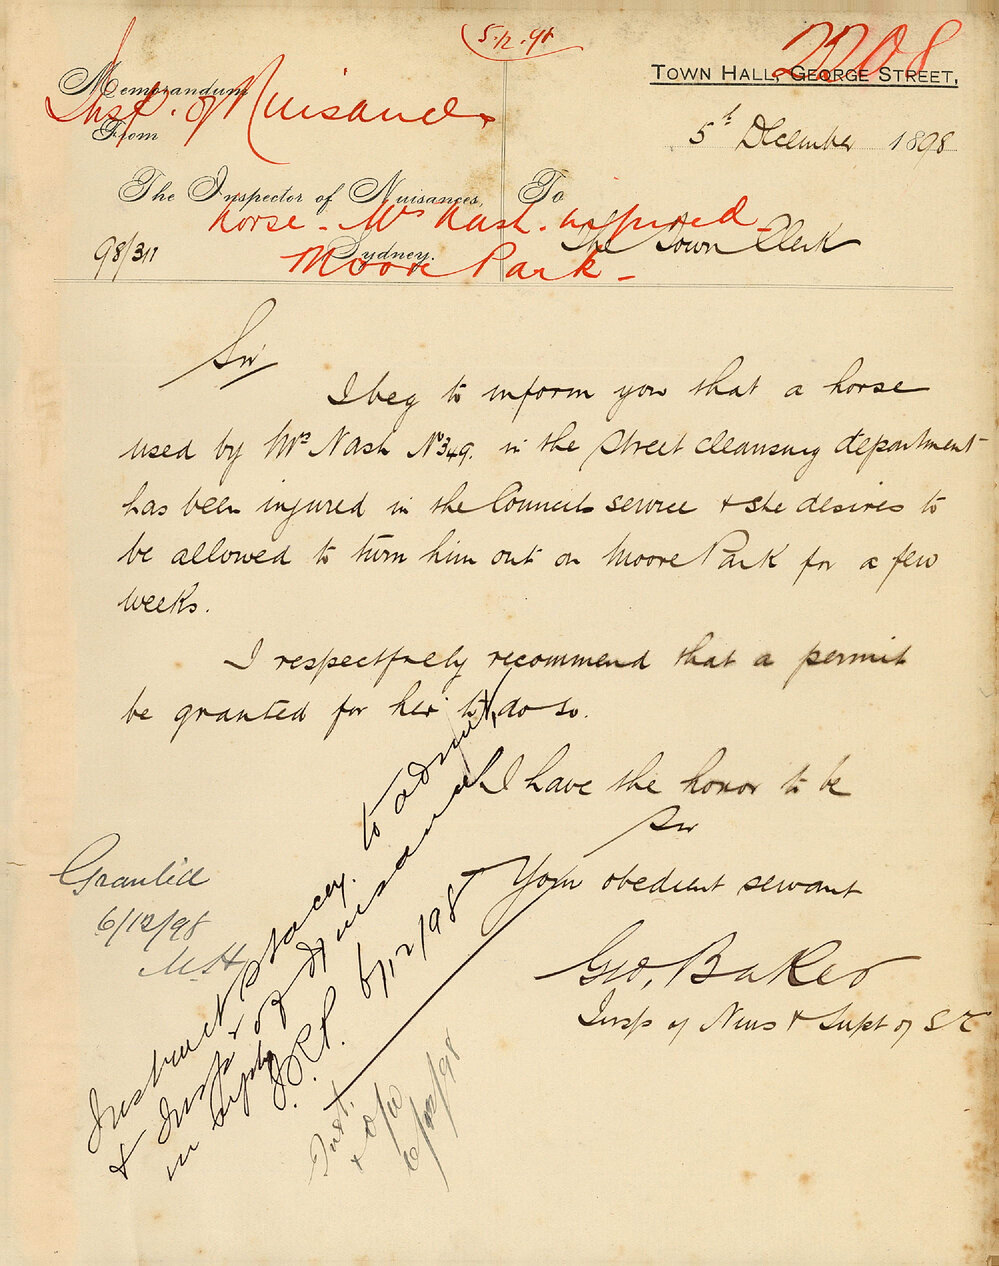 5.12.98
2208
Memorandum
Insp. of Nuisances
From
Town Hall, George Street,
5th December 1898
The Inspector of Nuisances,
To
Horse - Mrs Nash. injured
The Town Clerk
98/311
Sydney.
Moore Park -
Sir
I beg to inform you that a horse
used by Mrs Nash No 349. in the Street Cleansing department
has been injured in the Councils service & she desires to
be allowed to turn him out on Moore Park for a few
weeks.
I respectfully recommend that a permit
be granted for her to do so.
I have the honor to be
Sir
Your obedient servant
Geo. Baker
Insp of Nuis & Supt of S C
Granted
6/12/98
Instruct Stacey. to admit,
& Insp. of Nuisances
in reply
6/12/98
Inst.
6/12/98